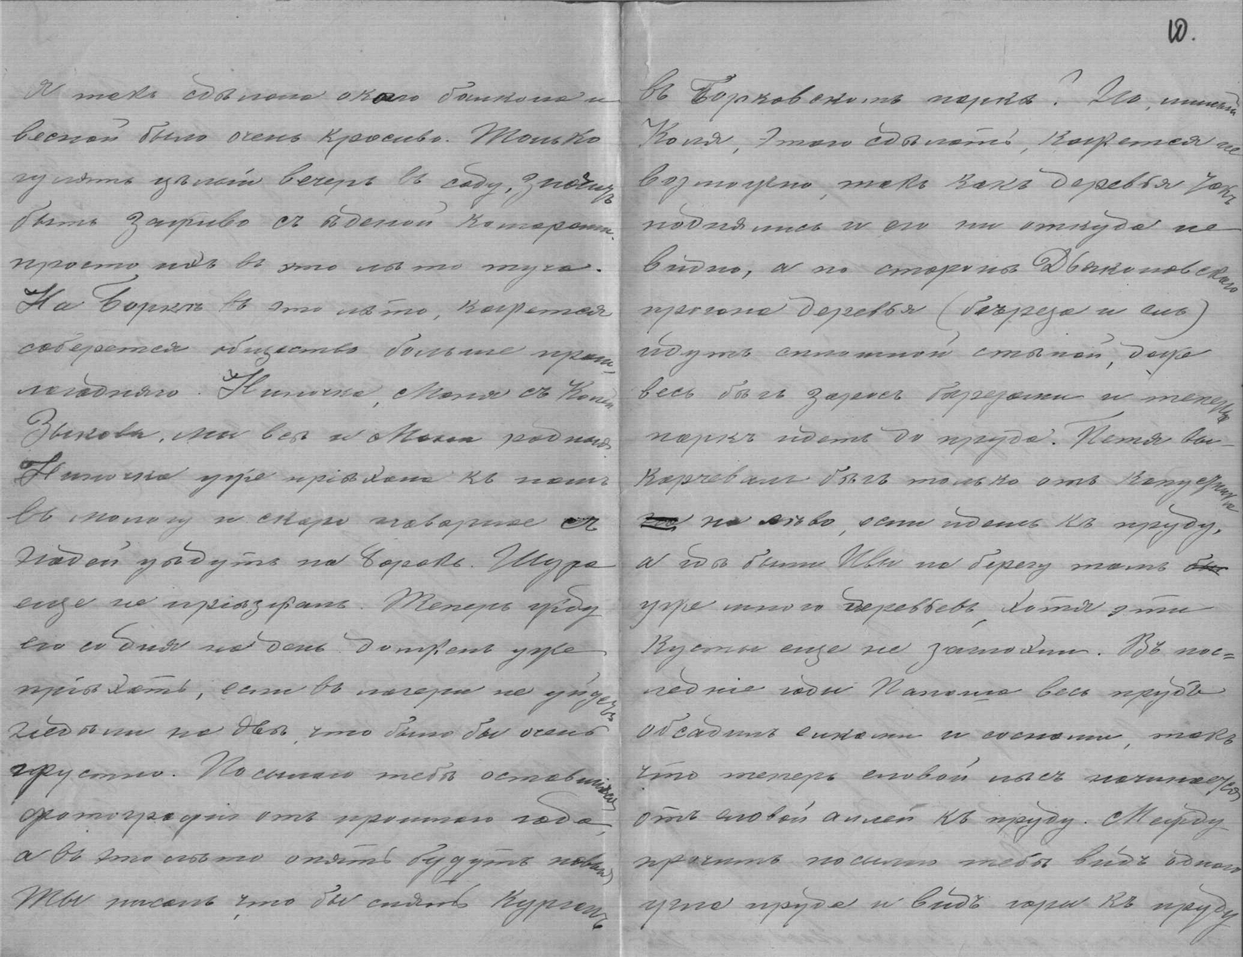 я такъ сдѣлала около балкона и
весной было очень красиво. Только
гулять цѣлый вечеръ въ саду, значитъ
быть заживо съѣденой комарами.
просто ихъ въ это лѣто туча.
На Боркѣ въ это лѣто, кажется
соберется общество больше прош-
логодняго. Ниночка, Маня съ Колей
Зыковы, мы всѣ и Маша родная.
Ниночка уже пріѣхала къ намъ
въ Мологу и скоро навѣрное съ
Надей уѣдутъ на Борокъ. Шура
еще не пріѣзжалъ. Теперь жду
его со дня на день долженъ уже
пріѣхать, если въ лагери не уйдетъ
недѣли на двѣ, что было бы очень
грустно. Посылаю тебѣ оставшіяся
фотографіи отъ прошлаго года,
а въ это лѣто опять будутъ новыя
Ты писалъ что бы снять Курганъ
10.
въ Борковскомъ паркѣ? Но, милый
Коля, этого сдѣлать, кажется не
возможно, такъ какъ деревья такъ
поднялись и его ни откуда не
видно, а по сторонѣ Дьяконовскаго
прогона деревья (береза и ель)
идутъ сплошной стѣной, даже
весь бѣгъ заросъ березами и теперь
паркъ идетъ до пруда. Петя вы-
корчевалъ бѣгъ только отъ Капустника
на лѣво, если идешь къ пруду,
а гдѣ были Ивы на берегу тамъ
уже много деревьевъ, хотя эти
кусты еще не заглохли. Въ пос-
ледніе годы Папаша весь прудъ
обсадилъ елками и соснами, такъ
что теперь еловой лѣсъ начинается
отъ еловой аллеи къ пруду. Между
прочимъ посылаю тебѣ видъ одного
угла пруда и видъ горы къ пруду